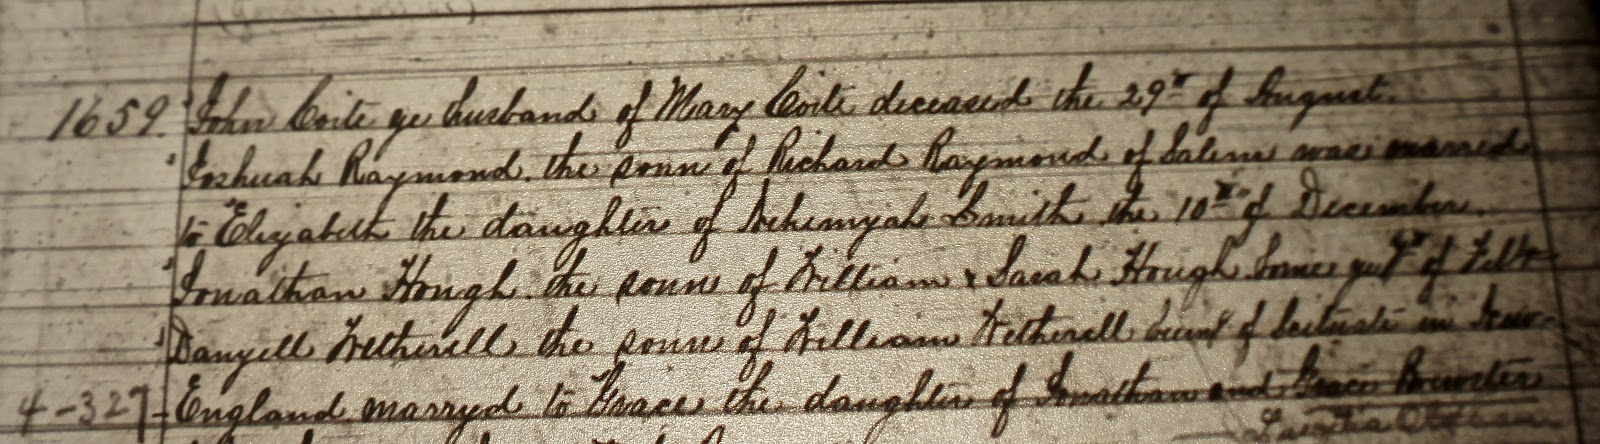 1659. John Coite ye husband of Mary Coite deceased the 29th of August.
Joshuah Raymond. the sonn of Richard Raymond of Salem was maried
to Elizabeth the daughter of Nehemyah Smith the 10th of December.
Jonathan Hough. the sonn of William & Sarah Hough borne ye 7th of Feb-
Danyell Wetherell the sonn of William Wetherell of Scituate in New-
4-327- England marryed to Grace the daughter of Jonathan and Grace Brewster
Lucretia Oldham